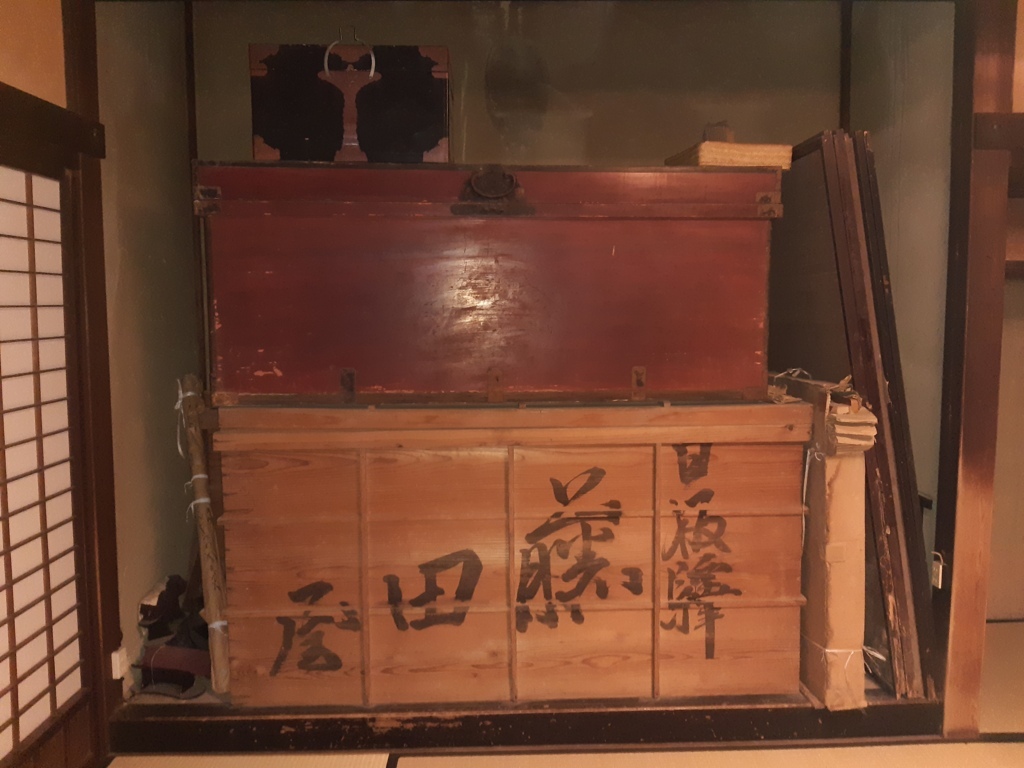 日坂驛
藤田屋